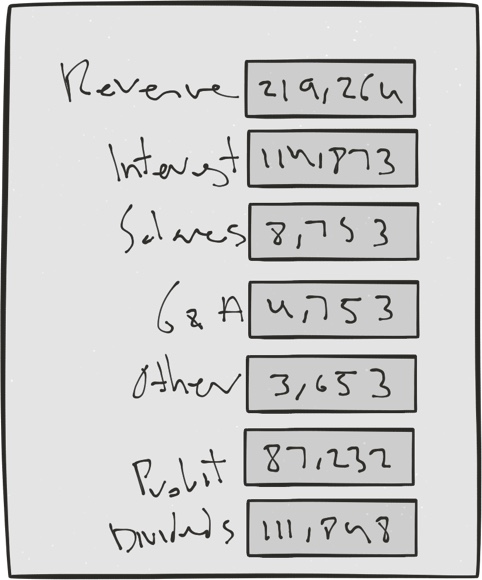 Revenue 219,264
Interest 114,873
Salaries 8,753
G & A 4,753
Other 3,653
Profit 87,232
Dividends 111,848